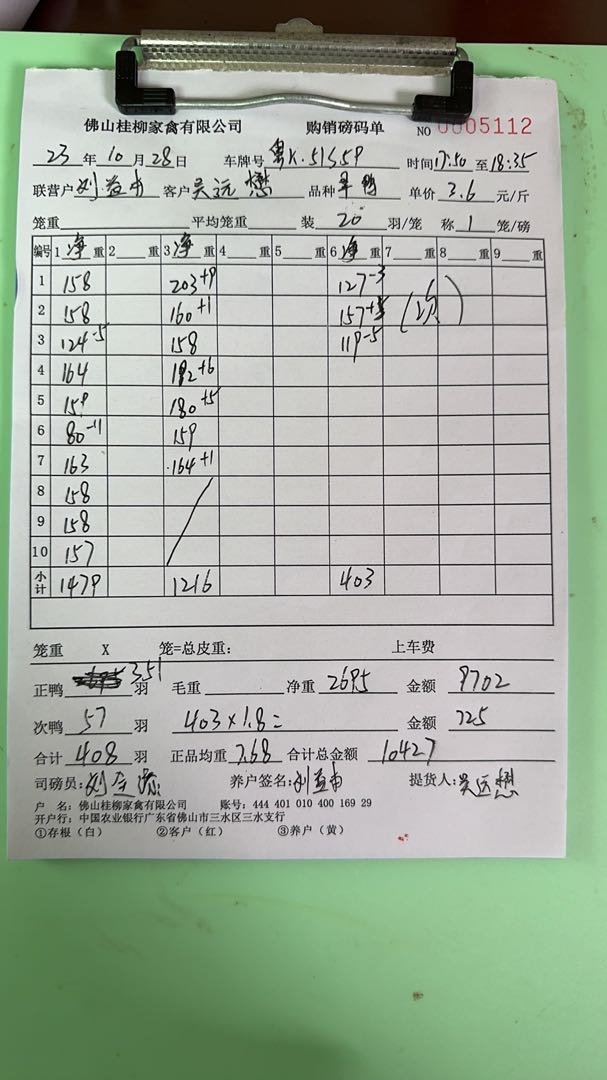 佛山桂柳家禽有限公司 购销磅码单 NO 0005112
23 年 10 月 28 日 车牌号 粤K.51S59 时间 17:50 至 18:35
联营户 刘益南 客户 吴远懋 品种 单价 3.6 元/斤
笼重 平均笼重 装 20 羽/笼 称 1 笼/磅
编号 1 净 重 2 重 3 净 重 4 重 5 重 6 净 重 7 重 8 重 9 重
1 158 203+9 127-3
2 158 160+1 157 (次)
3 124-5 158 119-5
4 164 192+6
5 159 180+5
6 80-11 159
7 163 164+1
8 158
9 158
10 157
小计 1479 1216 403
笼重 X 笼=总皮重: 上车费
正鸭 351 羽 毛重 净重 2695 金额 9702
次鸭 57 羽 403×1.8= 金额 725
合计 408 羽 正品均重 7.68 合计总金额 10427
司磅员: 养户签名: 刘益南 提货人: 吴远懋
户 名: 佛山桂柳家禽有限公司 账号: 444 401 010 400 169 29
开户行: 中国农业银行广东省佛山市三水区三水支行
①存根(白) ②客户(红) ③养户(黄)